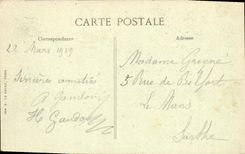 CARTE POSTALE
Correspondance
Adresse
22 Mars 1919
Sincères amitiés
H Gandon
Madame
5 Rue de Belfort
Le Mans
Sarthe